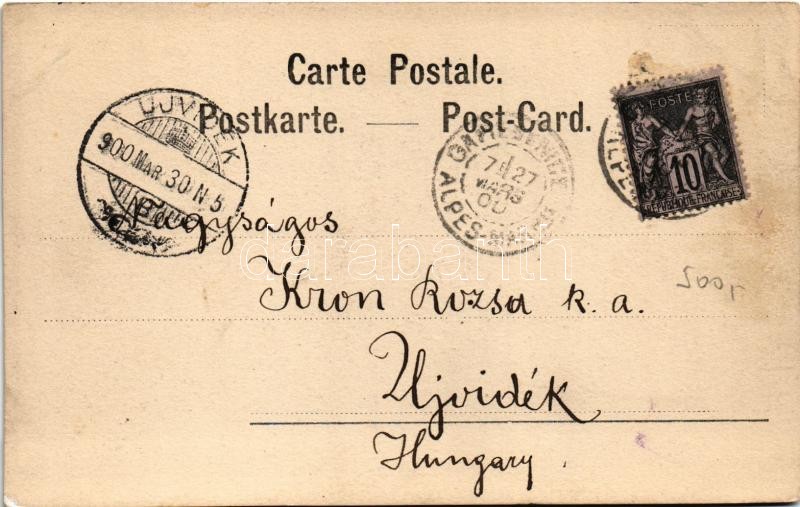 Carte Postale.
Postkarte. — Post-Card.
UJVIDÉK
900 MAR 30 N 5
7E 27
MARS
00
ALPES-MAR
POSTE
10
REPUBLIQUE FRANÇAISE
Nagyságos
Kron Rozsa k. a.
Ujvidék
Hungary.
500,-
darabanth